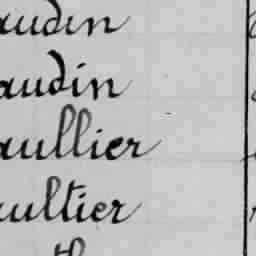 audin
audin
aullier
aultier